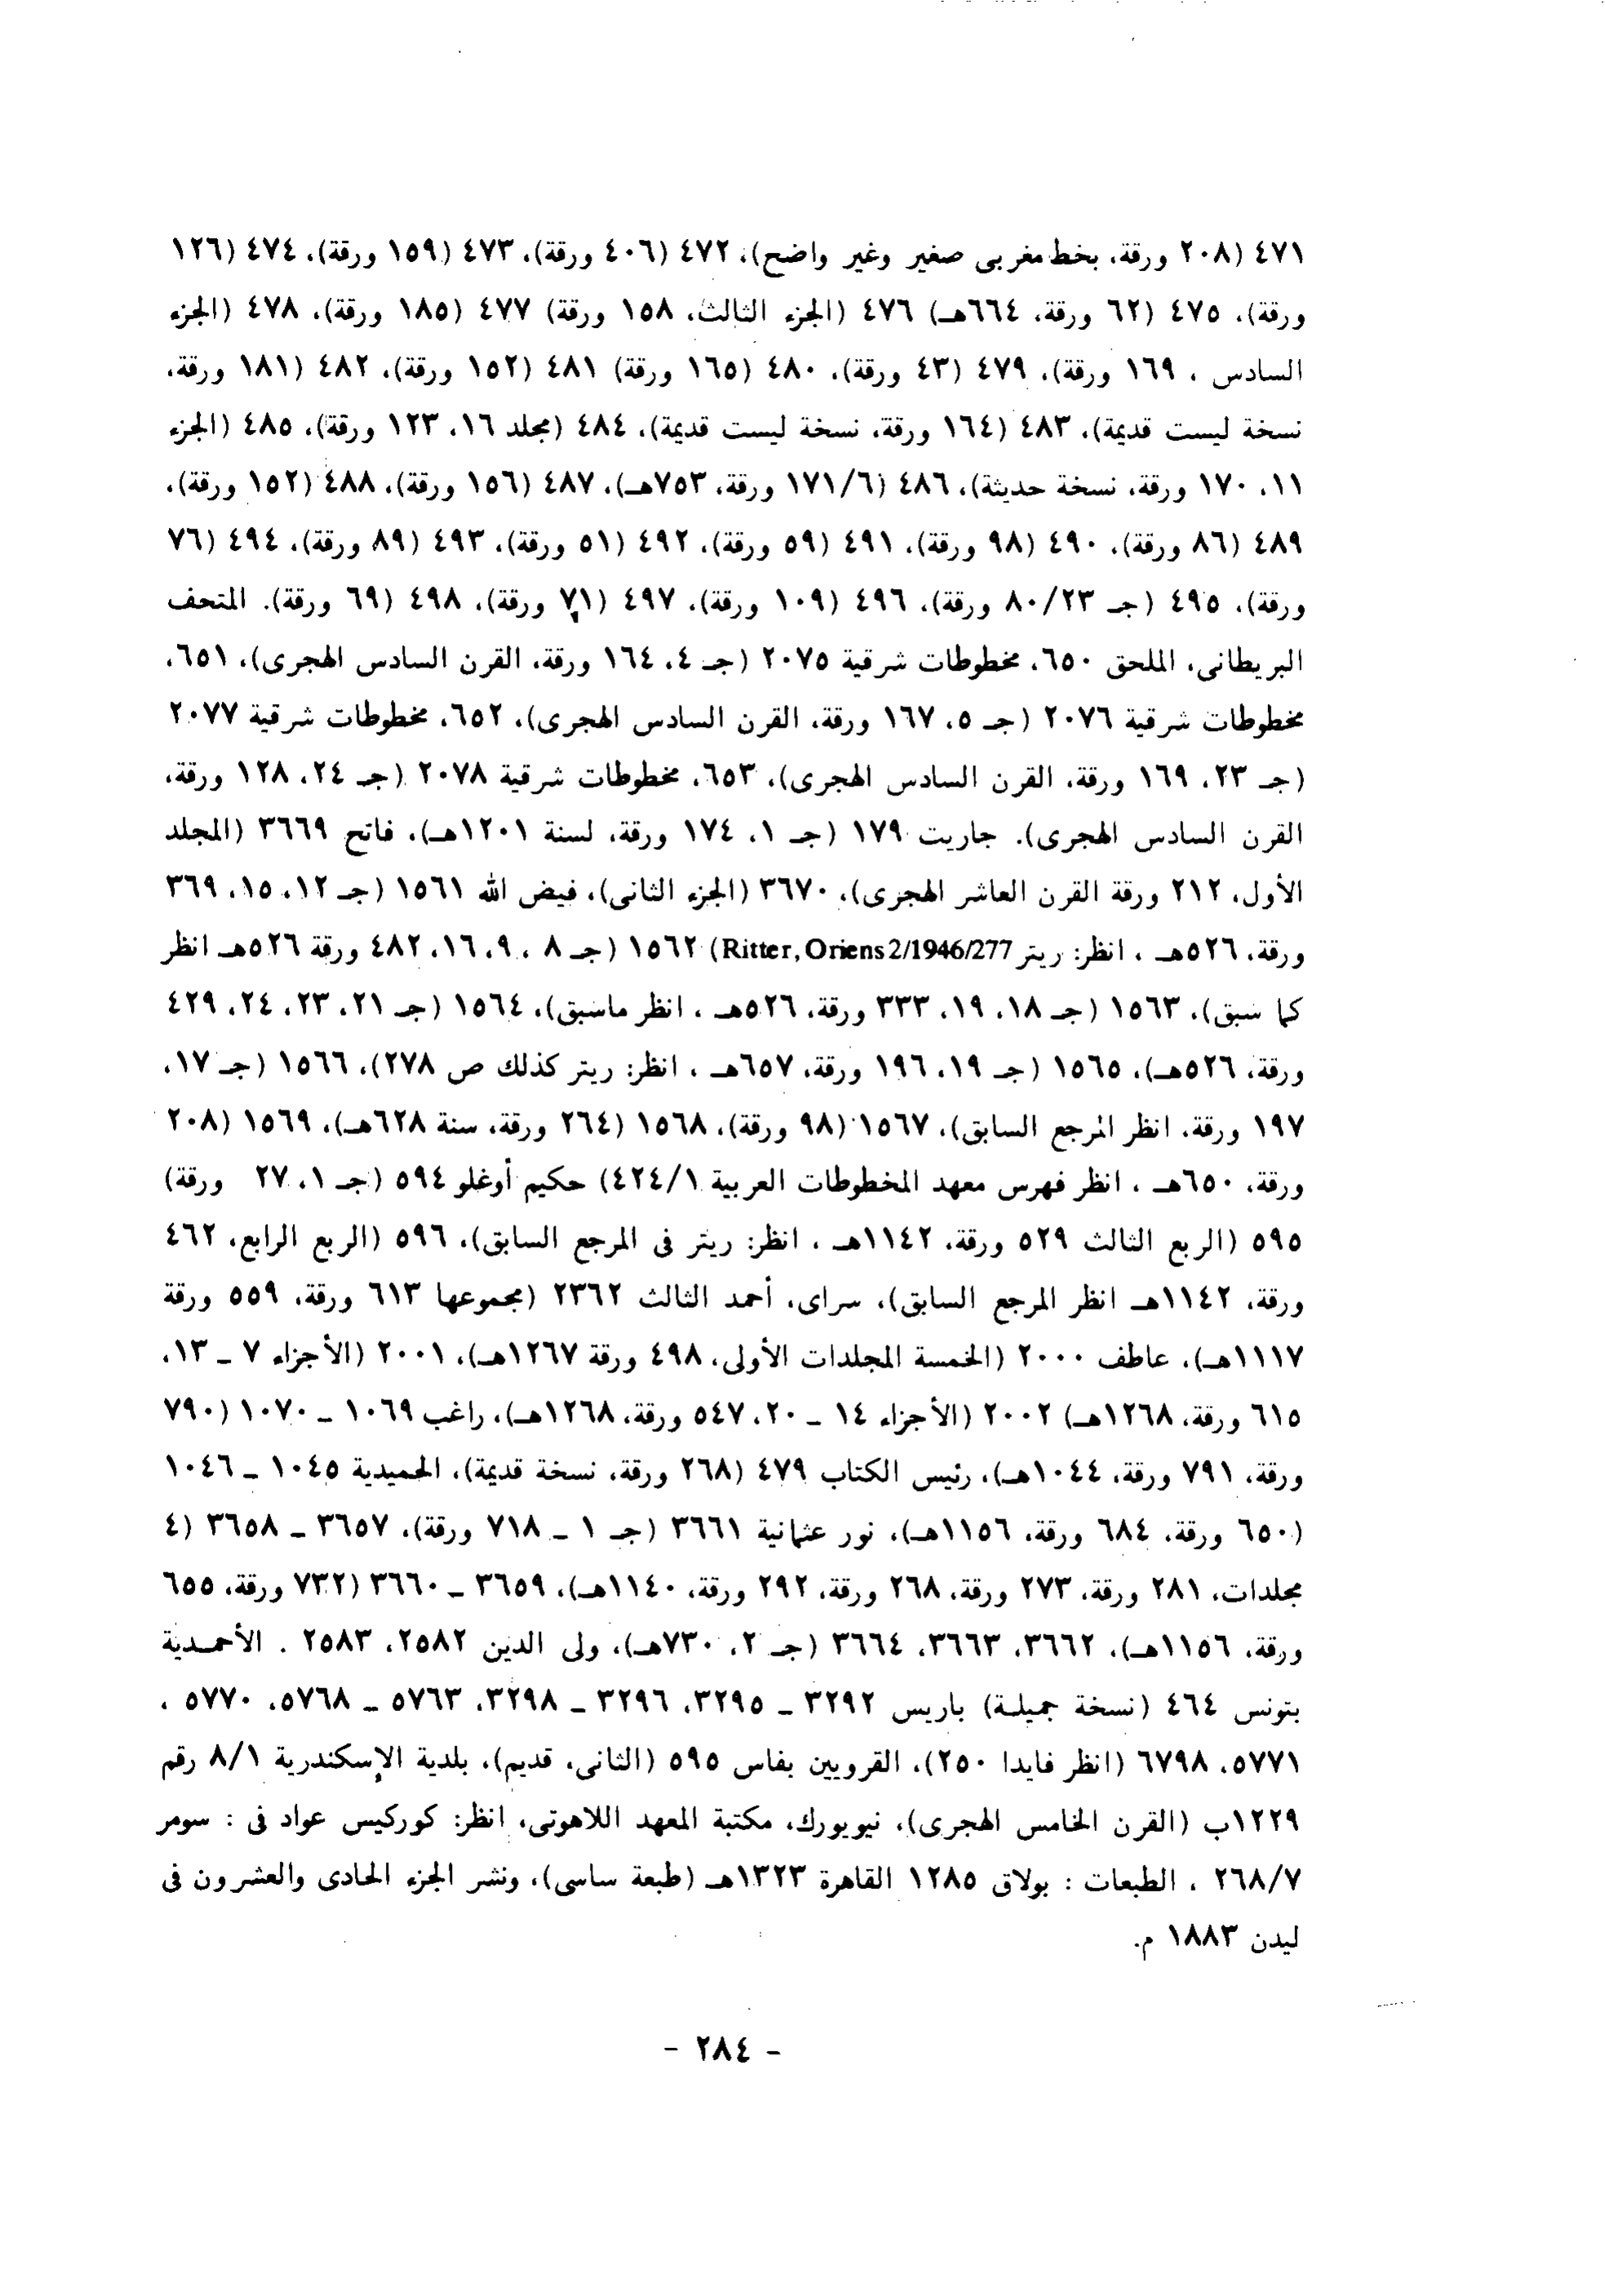 ٤٧١ (٢٠٨ ورقة، بخط مغربى صغير وغير واضح)، ٤٧٢ (٤٠٦ ورقة)، ٤٧٣ (١٥٩ ورقة)، ٤٧٤ (١٢٦
ورقة)، ٤٧٥ (٦٢ ورقة، ٦٦٤هـ) ٤٧٦ (الجزء الثالث، ١٥٨ ورقة) ٤٧٧ (١٨٥ ورقة)، ٤٧٨ (الجزء
السادس ، ١٦٩ ورقة)، ٤٧٩ (٤٣ ورقة)، ٤٨٠ (١٦٥ ورقة) ٤٨١ (١٥٢ ورقة)، ٤٨٢ (١٨١ ورقة،
نسخة ليست قديمة)، ٤٨٣ (١٦٤ ورقة، نسخة ليست قديمة)، ٤٨٤ (مجلد ١٦، ١٢٣ ورقة)، ٤٨٥ (الجزء
١١، ١٧٠ ورقة، نسخة حديثة)، ٤٨٦ (١٧١/٦ ورقة، ٧٥٣هـ)، ٤٨٧ (١٥٦ ورقة)، ٤٨٨ (١٥٢ ورقة)،
٤٨٩ (٨٦ ورقة)، ٤٩٠ (٩٨ ورقة)، ٤٩١ (٥٩ ورقة)، ٤٩٢ (٥١ ورقة)، ٤٩٣ (٨٩ ورقة)، ٤٩٤ (٧٦
ورقة)، ٤٩٥ (جـ ٨٠/٢٣ ورقة)، ٤٩٦ (١٠٩ ورقة)، ٤٩٧ (٧١ ورقة)، ٤٩٨ (٦٩ ورقة). المتحف
البريطانى، الملحق ٦٥٠، مخطوطات شرقية ٢٠٧٥ (جـ ٤، ١٦٤ ورقة، القرن السادس الهجرى)، ٦٥١،
مخطوطات شرقية ٢٠٧٦ (جـ ٥، ١٦٧ ورقة، القرن السادس الهجرى)، ٦٥٢، مخطوطات شرقية ٢٠٧٧
(جـ ٢٣، ١٦٩ ورقة، القرن السادس الهجرى)، ٦٥٣، مخطوطات شرقية ٢٠٧٨ (جـ ٢٤، ١٢٨ ورقة،
القرن السادس الهجرى). جاريت ١٧٩ (جـ ١، ١٧٤ ورقة، لسنة ١٢٠١هـ)، فاتح ٣٦٦٩ (المجلد
الأول، ٢١٢ ورقة القرن العاشر الهجرى)، ٣٦٧٠ (الجزء الثانى)، فيض الله ١٥٦١ (جـ ١٢، ١٥، ٣٦٩
ورقة، ٥٢٦هـ ، انظر: ريتر Ritter, Oriens 2/1946/277) ١٥٦٢ (جـ ٨ ، ٩، ١٦، ٤٨٢ ورقة ٥٢٦هـ انظر
كما سبق)، ١٥٦٣ (جـ ١٨، ١٩، ٣٣٣ ورقة، ٥٢٦هـ ، انظر ماسبق)، ١٥٦٤ (جـ ٢١، ٢٣، ٢٤، ٤٢٩
ورقة، ٥٢٦هـ)، ١٥٦٥ (جـ ١٩، ١٩٦ ورقة، ٦٥٧هـ ، انظر: ريتر كذلك ص ٢٧٨)، ١٥٦٦ (جـ ١٧،
١٩٧ ورقة، انظر المرجع السابق)، ١٥٦٧ (٩٨ ورقة)، ١٥٦٨ (٢٦٤ ورقة، سنة ٦٢٨هـ)، ١٥٦٩ (٢٠٨
ورقة، ٦٥٠هـ ، انظر فهرس معهد المخطوطات العربية ٤٢٤/١) حكيم أوغلو ٥٩٤ (جـ ١، ٢٧ ورقة)
٥٩٥ (الربع الثالث ٥٢٩ ورقة، ١١٤٢هـ ، انظر: ريتر فى المرجع السابق)، ٥٩٦ (الربع الرابع، ٤٦٢
ورقة، ١١٤٢هـ انظر المرجع السابق)، سراى، أحمد الثالث ٢٣٦٢ (مجموعها ٦١٣ ورقة، ٥٥٩ ورقة
١١١٧هـ)، عاطف ٢٠٠٠ (الخمسة المجلدات الأولى، ٤٩٨ ورقة ١٢٦٧هـ)، ٢٠٠١ (الأجزاء ٧ ـ ١٣،
٦١٥ ورقة، ١٢٦٨هـ) ٢٠٠٢ (الأجزاء ١٤ ـ ٢٠، ٥٤٧ ورقة، ١٢٦٨هـ)، راغب ١٠٦٩ ـ ١٠٧٠ (٧٩٠
ورقة، ٧٩١ ورقة، ١٠٤٤هـ)، رئيس الكتاب ٤٧٩ (٢٦٨ ورقة، نسخة قديمة)، الحميدية ١٠٤٥ ـ ١٠٤٦
(٦٥٠ ورقة، ٦٨٤ ورقة، ١١٥٦هـ)، نور عثمانية ٣٦٦١ (جـ ١ ـ ٧١٨ ورقة)، ٣٦٥٧ ـ ٣٦٥٨ (٤
مجلدات، ٢٨١ ورقة، ٢٧٣ ورقة، ٢٦٨ ورقة، ٢٩٢ ورقة، ١١٤٠هـ)، ٣٦٥٩ ـ ٣٦٦٠ (٧٣٢ ورقة، ٦٥٥
ورقة، ١١٥٦هـ)، ٣٦٦٢، ٣٦٦٣، ٣٦٦٤ (جـ ٢، ٧٣٠هـ)، ولى الدين ٢٥٨٢، ٢٥٨٣ . الأحمـدية
بتونس ٤٦٤ (نسخة جميلـة) باريس ٣٢٩٢ ـ ٣٢٩٥، ٣٢٩٦ ـ ٣٢٩٨، ٥٧٦٣ ـ ٥٧٦٨، ٥٧٧٠ ،
٥٧٧١، ٦٧٩٨ (انظر فايدا ٢٥٠)، القرويين بفاس ٥٩٥ (الثانى، قديم)، بلدية الإسكندرية ٨/١ رقم
١٢٢٩ب (القرن الخامس الهجرى)، نيويورك، مكتبة المعهد اللاهوتى، انظر: كوركيس عواد فى : سومر
٢٦٨/٧ ، الطبعات : بولاق ١٢٨٥ القاهرة ١٣٢٣هـ (طبعة ساسى)، ونشر الجزء الحادى والعشرون فى
ليدن ١٨٨٣ م.
- ٢٨٤ -